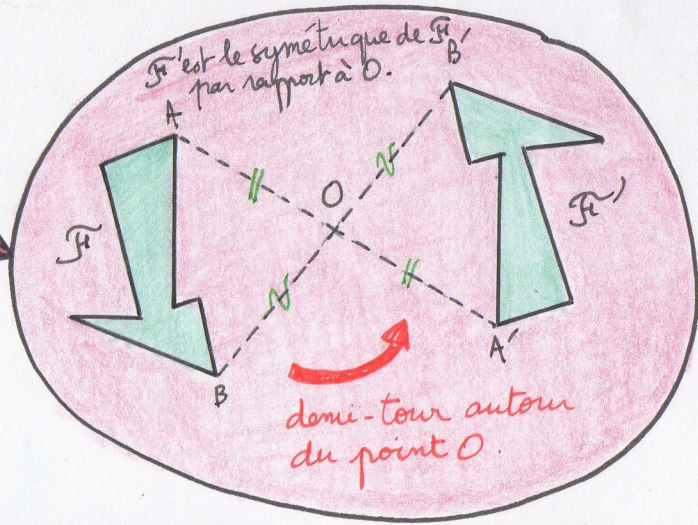 F' est le symétrique de F
par rapport à O.
A
B'
O
F
F'
A'
B
demi-tour autour
du point O.